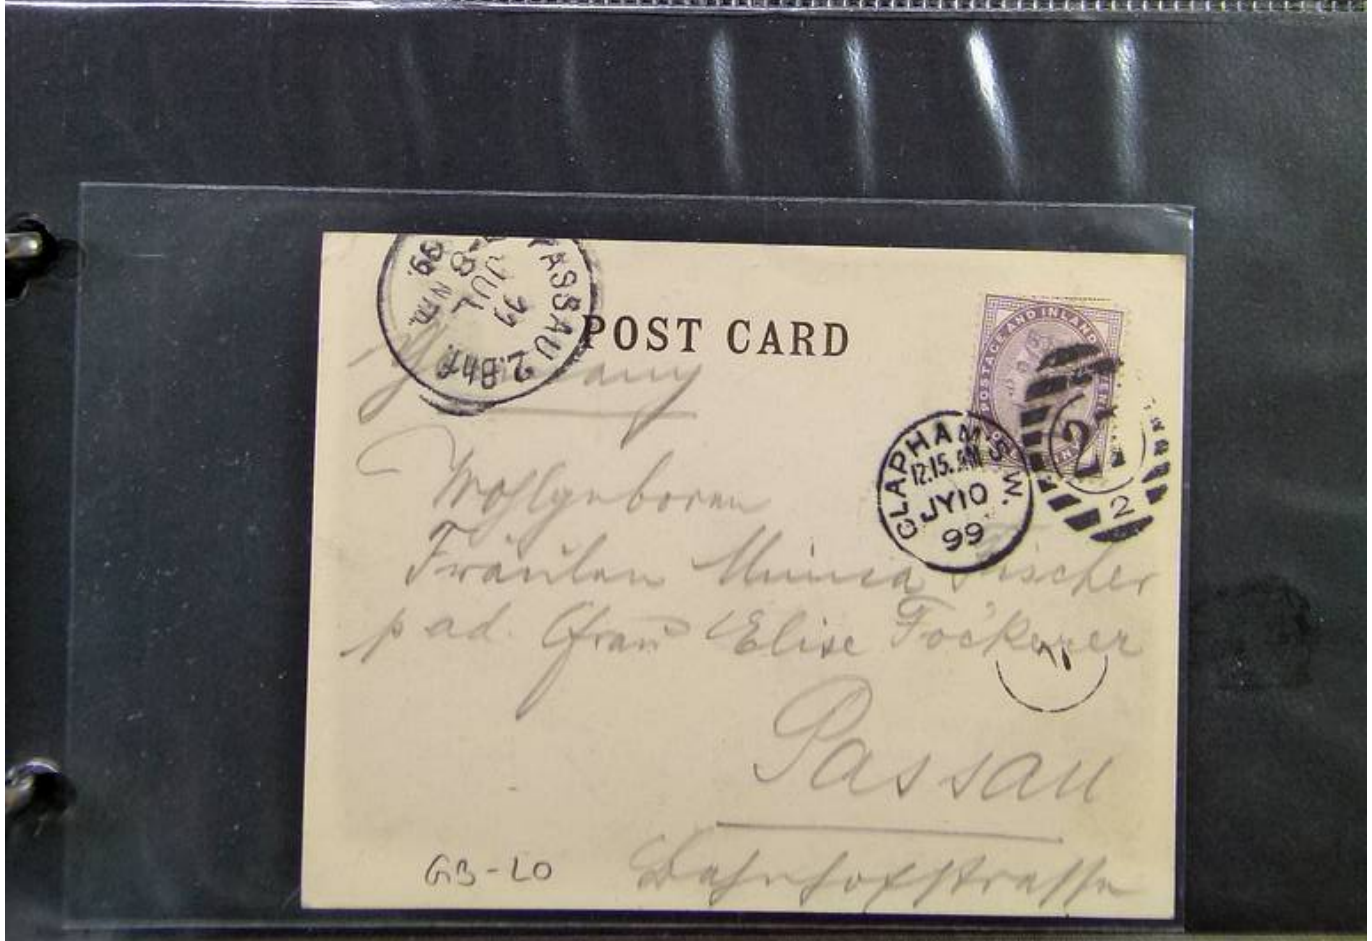 PASSAU 2.Bhf.
11
JUL
8-
Nm.
99.
POST CARD
Germany
POSTAGE AND INLAND
CLAPHAM S.W.
12.15.AM
JY10
99
27
2
Wohlgeboren
Fräulein Minna Fischer
p ad. Frau Elise Föckerer
Passau
Bahnhofstrasse
GB-LO